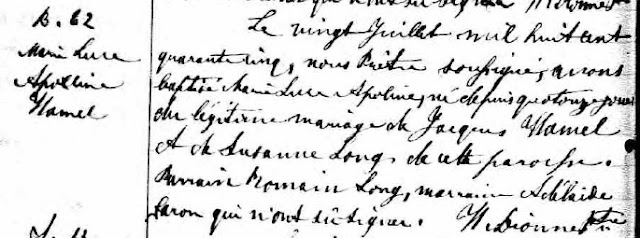 B. 62
Marie Luce
Apolline
Hamel
Le vingt Juillet mil huit cent
quarante cinq, nous Prêtre soussigné, avons
baptisé Marie Luce Apoline, né depuis quatorze jours
du légitime mariage de Jacques Hamel
et de Susanne Long, de cette paroisse.
Parrain Romain Long, marraine Adélaïde
Caron qui n'ont su signer. N. Dionne ptre